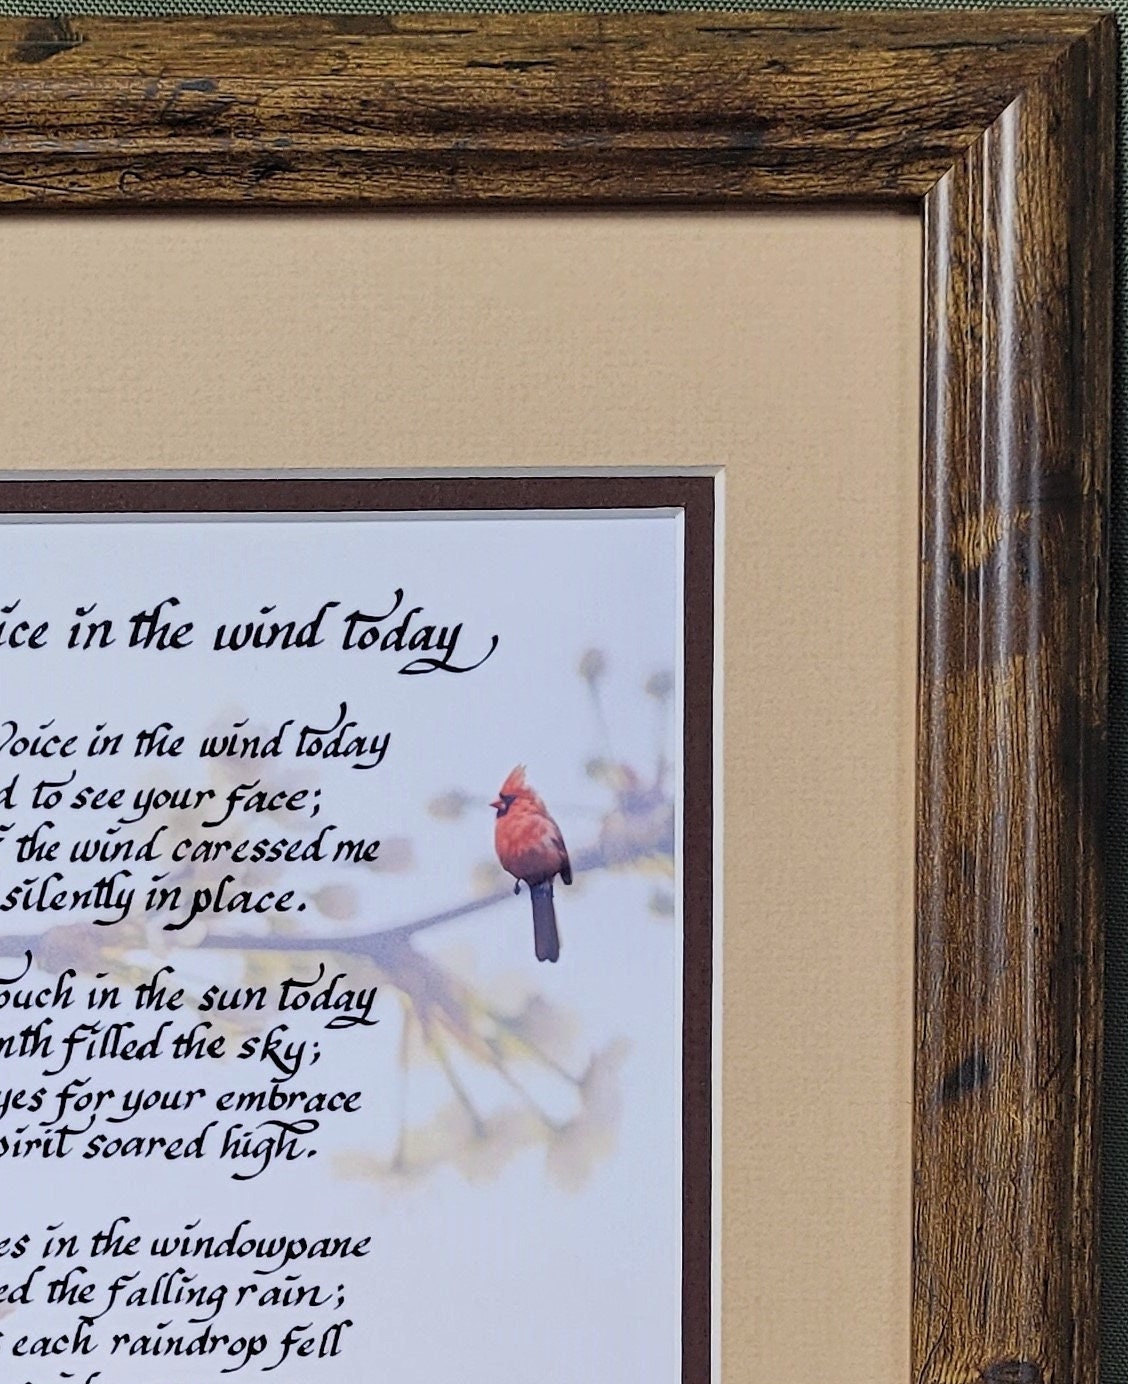 ice in the wind today
Voice in the wind today
d to see your face;
f the wind caressed me
silently in place.
ouch in the sun today
mth filled the sky;
yes for your embrace
pirit soared high.
es in the windowpane
ed the falling rain;
s each raindrop fell